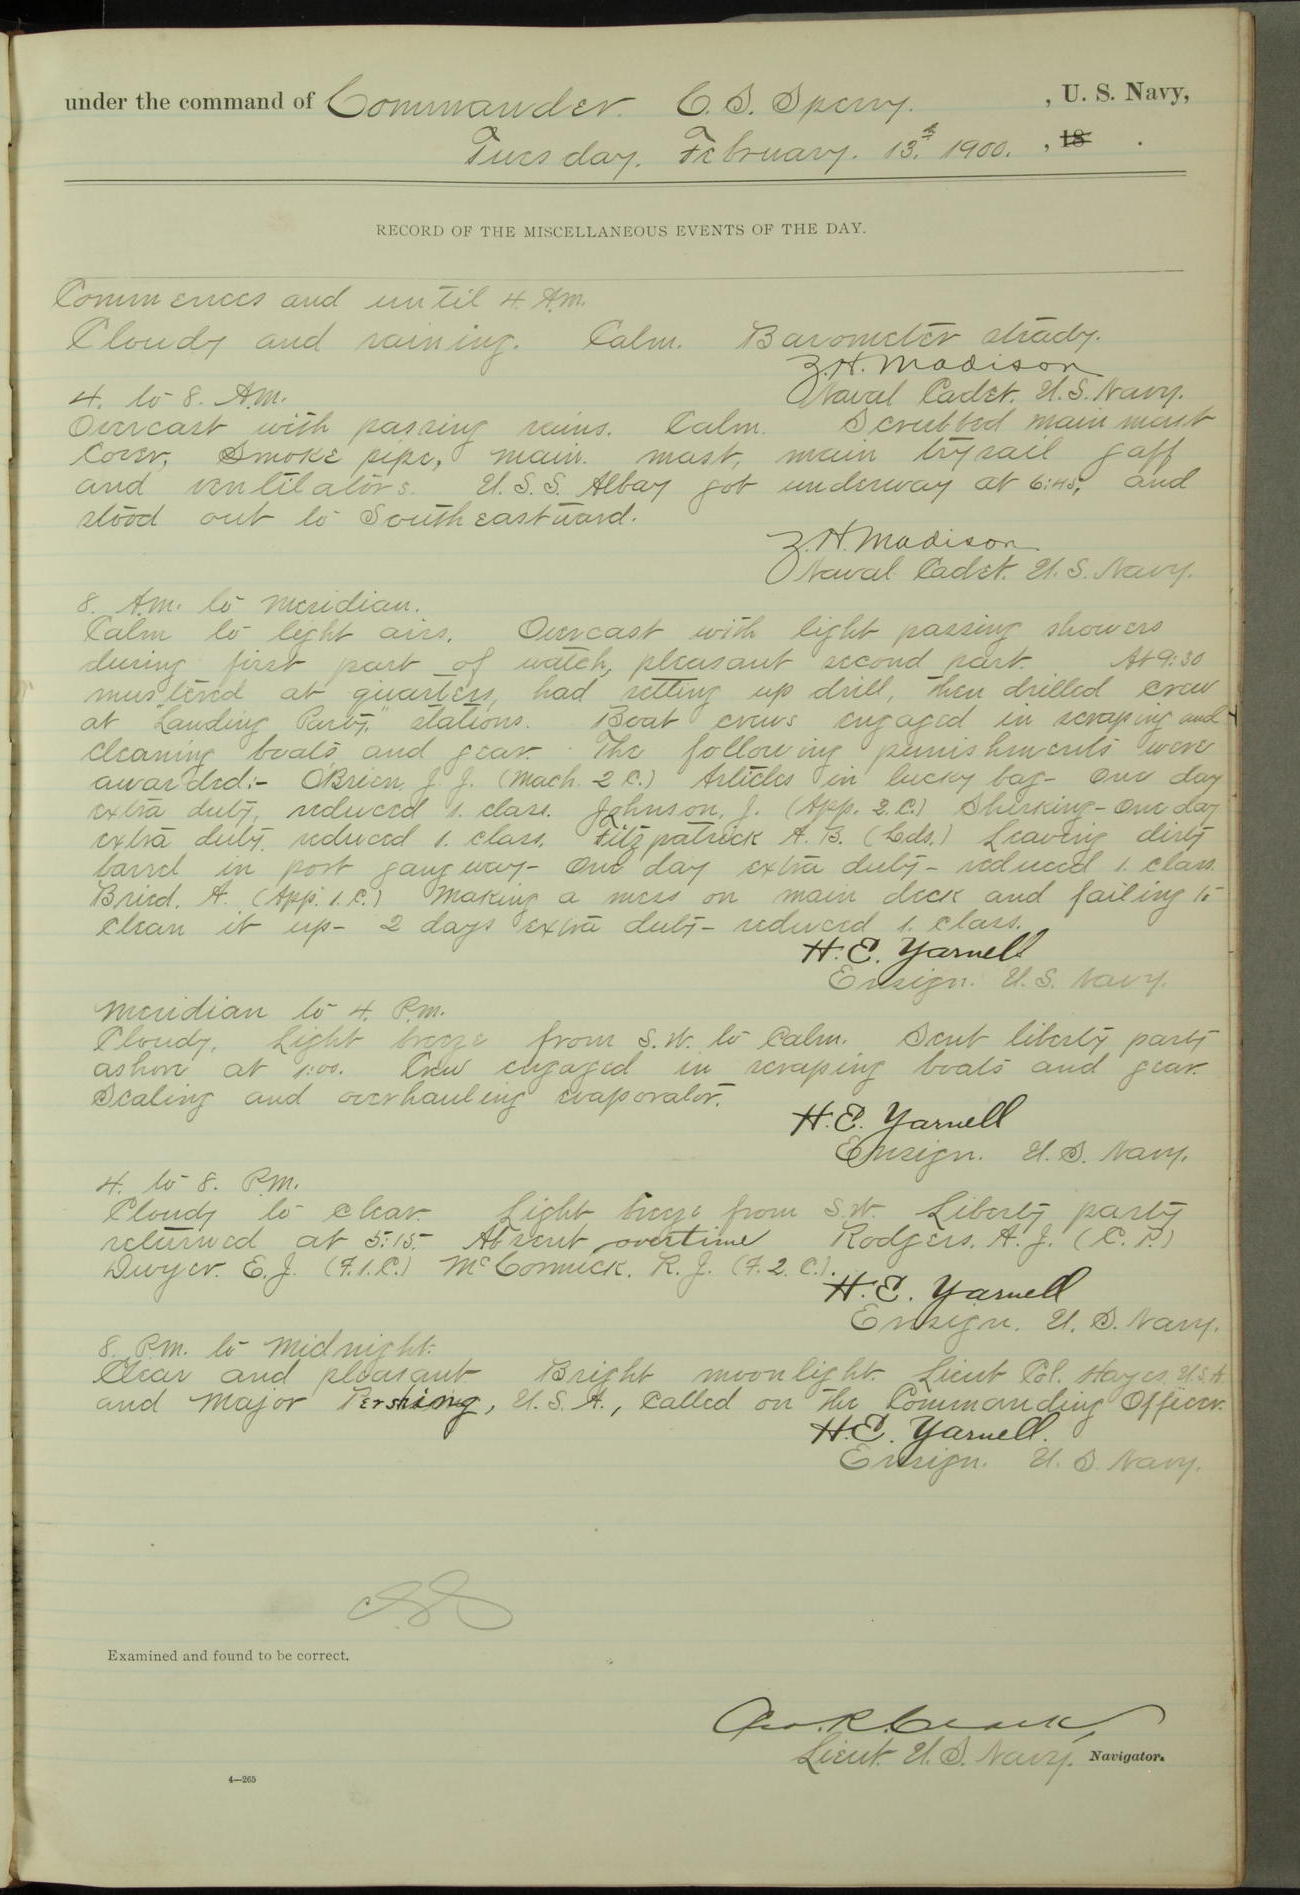 under the command of Commander. C. S. Sperry. , U. S. Navy,
Tuesday. February. 13th 1900. , 18 .
RECORD OF THE MISCELLANEOUS EVENTS OF THE DAY.
Commences and until 4. A.M.
Cloudy and raining. Calm. Barometer steady.
Z.H. Madison
Naval Cadet. U.S. Navy.
4. to 8. A.M.
Overcast with passing rains. Calm. Scrubbed main mast
cover, Smoke pipe, main mast, main trysail gaff
and ventilators. U.S.S. Albay got underway at 6:45, and
stood out to Southeastward.
Z.H. Madison
Naval Cadet. U.S. Navy.
8. A.M. to Meridian.
Calm to light airs. Overcast with light passing showers
during first part of watch, pleasant second part. At 9:30
mustered at quarters, had setting up drill, then drilled crew
at "Landing Party" stations. Boat crews engaged in scraping and
cleaning boats and gear. The following punishments were
awarded:- O'Brien, J. J. (Mach. 2 C.) Articles in lucky bag- One day
extra duty, reduced 1. class. Johnson, J. (App. 2.C.) Shirking- One day
extra duty reduced 1. class. Fitzpatrick A. B. (Lds.) Leaving dirty
barrel in port gangway- One day extra duty- reduced 1. class.
A. (App. 1. C.) Making a mess on main deck and failing to
clean it up- 2 days extra duty- reduced 1. class.
H. E. Yarnell
Ensign. U.S. Navy.
Meridian to 4. P.M.
Cloudy. Light breeze from S.W. to Calm. Sent liberty party
ashore at 1:00. Crew engaged in scraping boats and gear.
Scaling and overhauling evaporator.
H. E. Yarnell
Ensign. U.S. Navy.
4. to 8. P.M.
Cloudy to clear. Light breeze from S.W. Liberty party
returned at 5:15. Absent overtime Rodgers. A. J. (C. P.)
Dwyer. E. J. (F.1.C.) McCormick. R. J. (F. 2. C.).
H. E. Yarnell
Ensign. U. S. Navy.
8. P.M. to Midnight.
Clear and pleasant Bright moonlight. Lieut Col. Hayes, U.S.A.
and Major Pershing, U. S. A., called on the Commanding Officer.
H.E. Yarnell.
Ensign. U. S. Navy.
Examined and found to be correct.
Geo. R. Clark,
Lieut. U. S. Navy. Navigator.
4—265